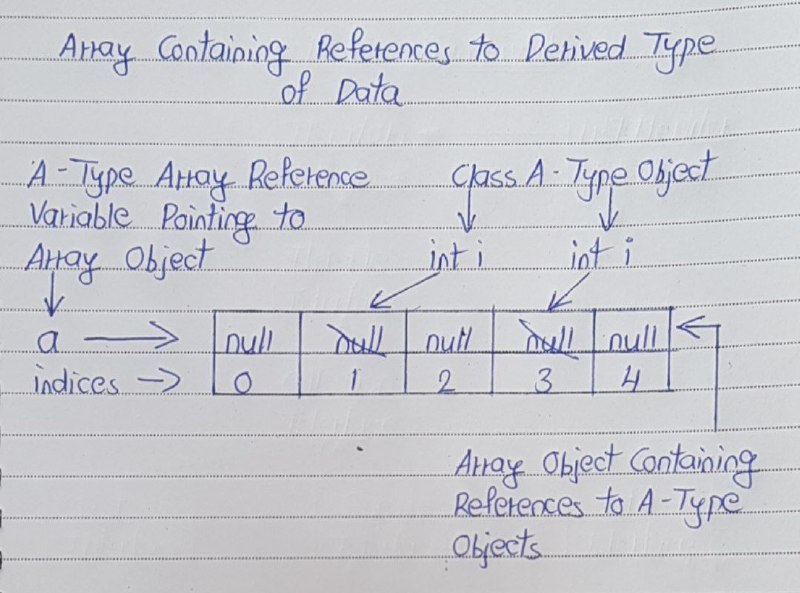 Array Containing References to Derived Type
of Data
A-Type Array Reference
Variable Pointing to
Array Object
Class A-Type Object
int i int i
a null null null null null
indices 0 1 2 3 4
Array Object Containing
References to A-Type
Objects